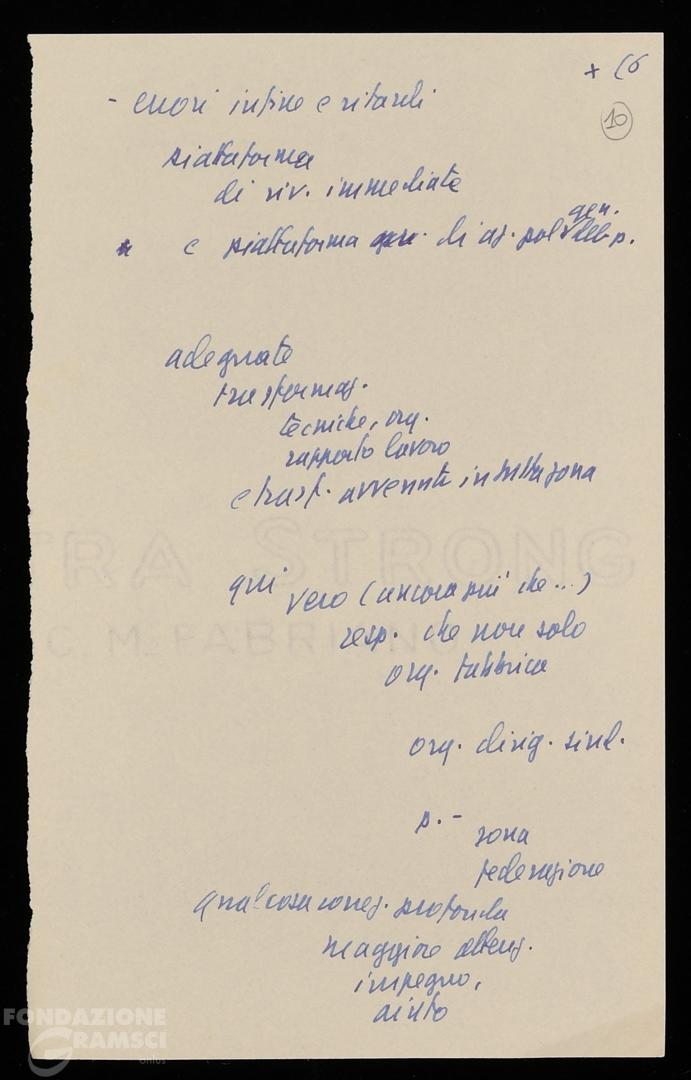 + 16
10
- errori infine e ritardi
piattaforma
di riv. immediate
gen.
e piattaforma di az. pol. del p.
adeguate
trasformaz.
tecniche, org.
rapporto lavoro
e trasf. avvenute in tutta zona
qui vero (ancora più che ...)
resp. che non solo
org. fabbrica
org. dirig. sind.
p. -
zona
federazione
qualcosa correz. profonda
maggiore attenz.
impegno,
aiuto
TRA STRONG
C. M. FABRIANO
FONDAZIONE
GRAMSCI
onlus